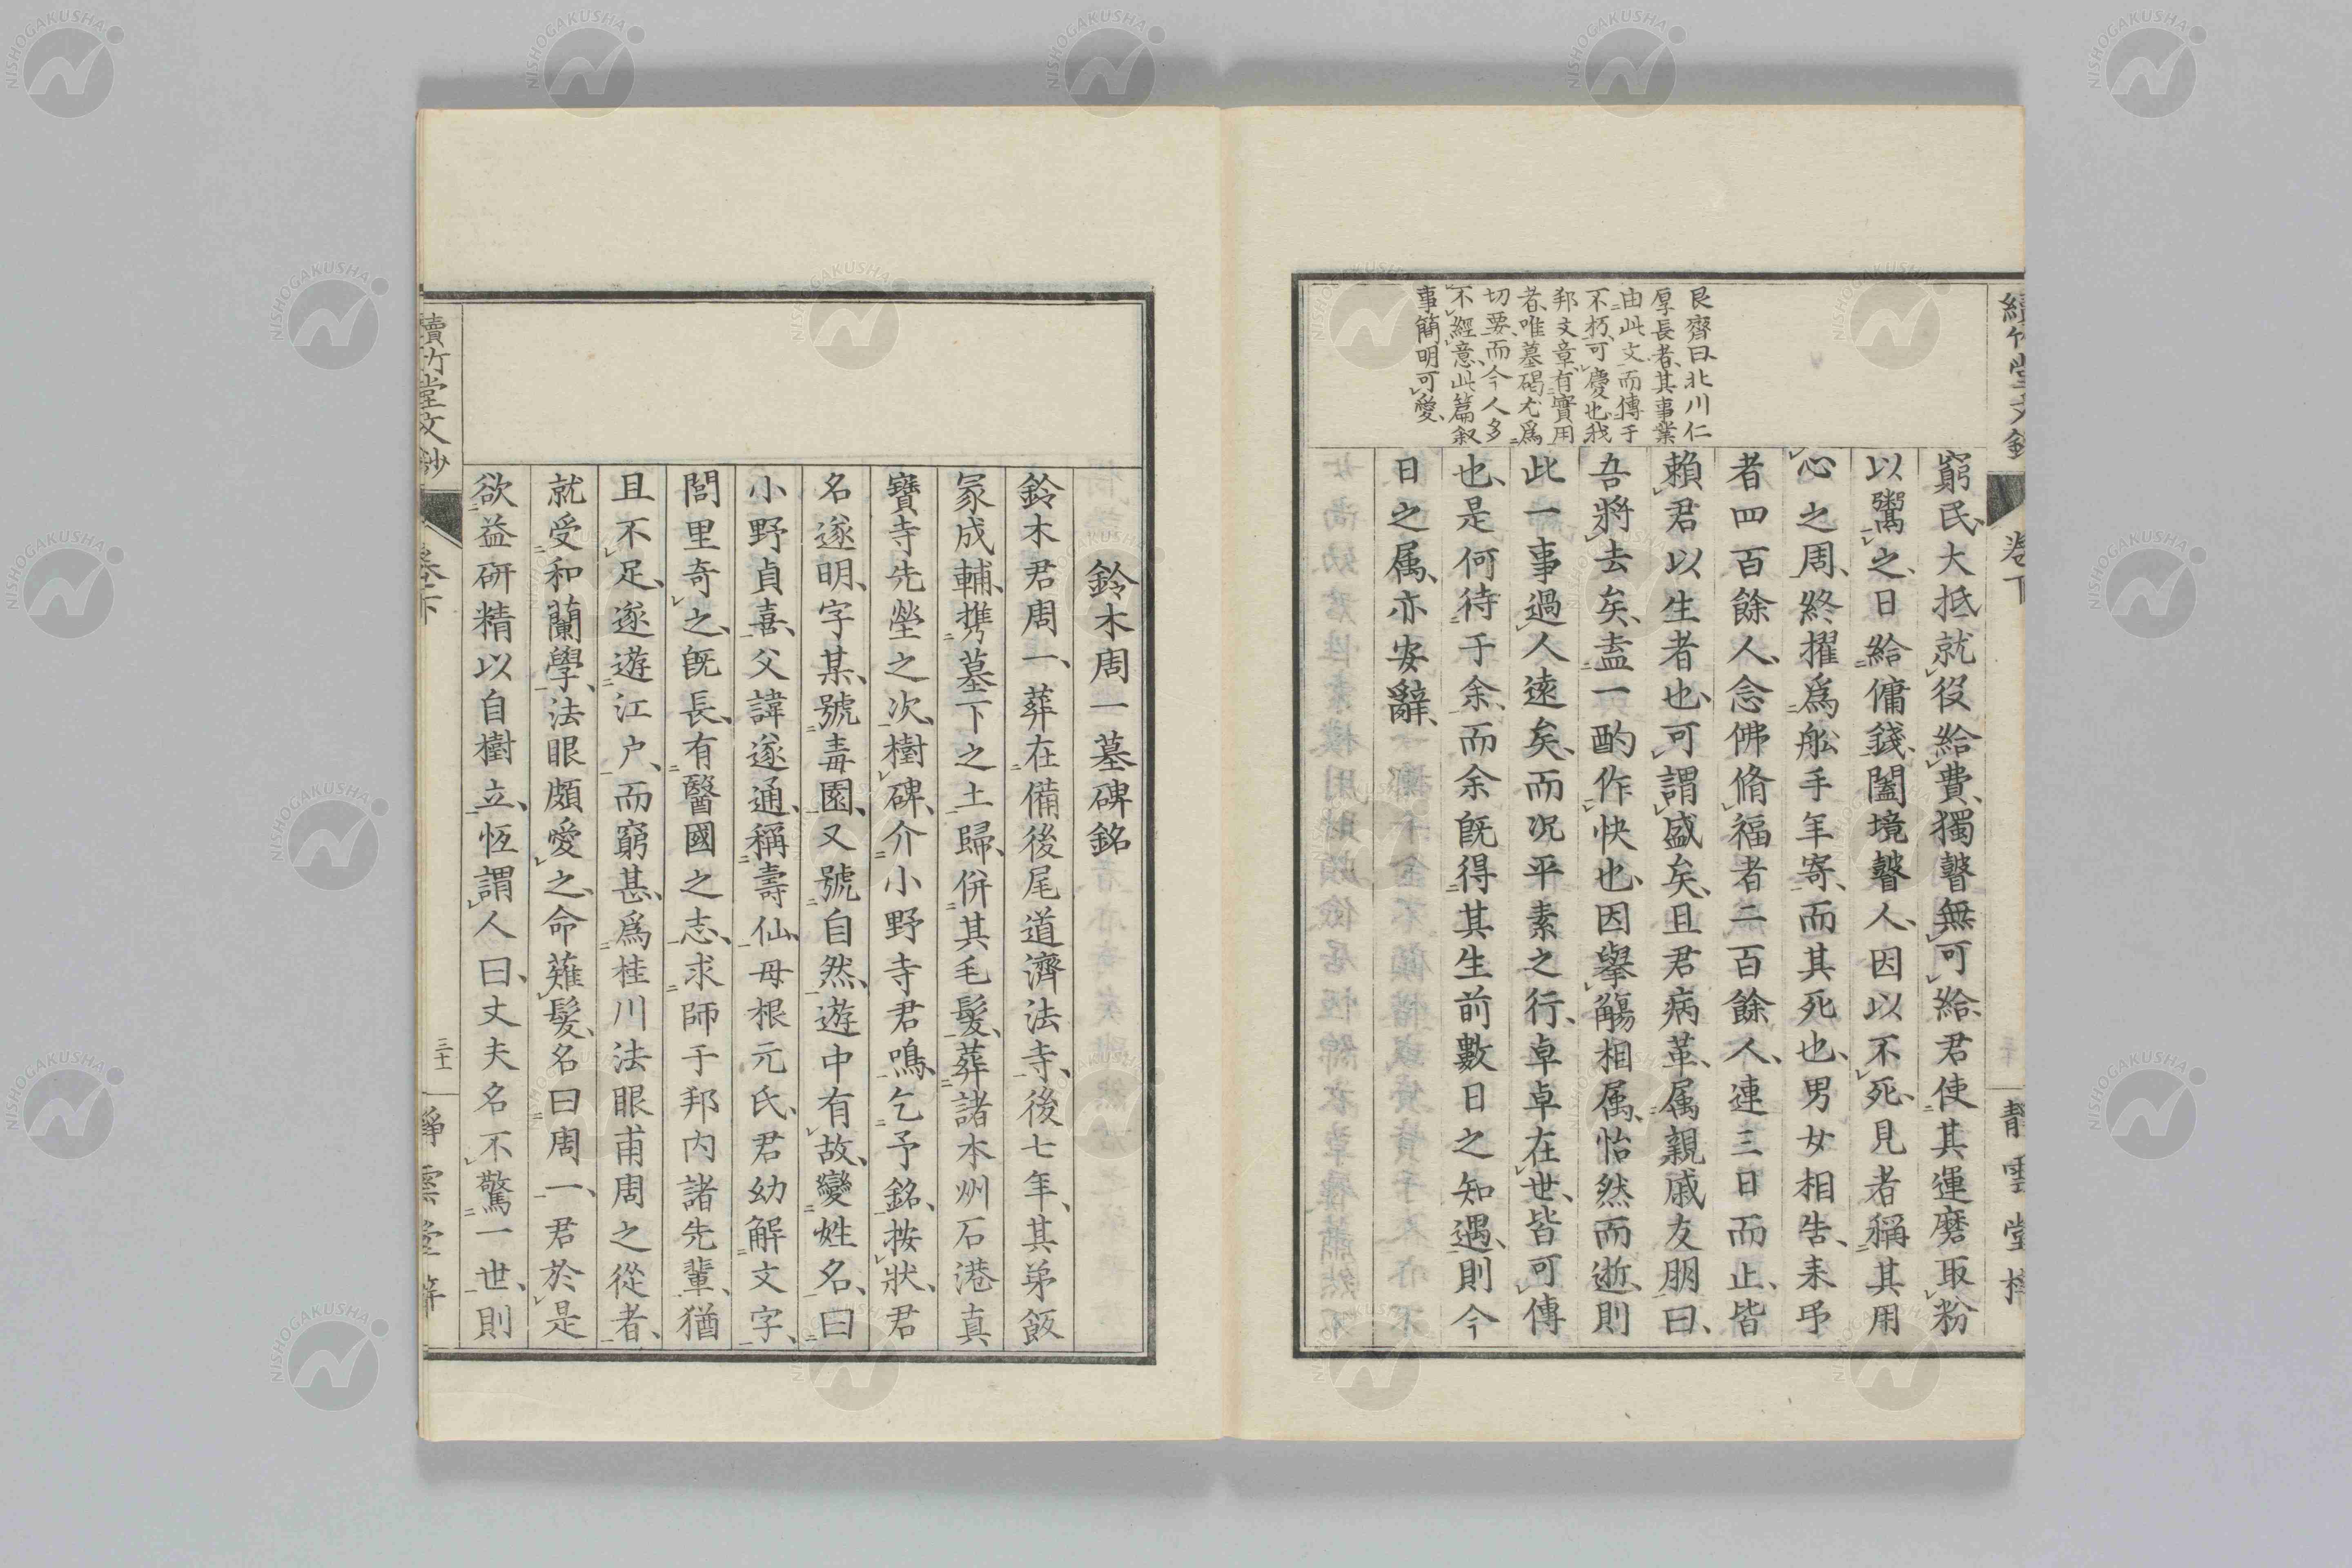 續竹堂文鈔
卷下
靜雲堂梓
艮齊曰、北川仁
厚長者、其事業
由此文而傳于
不朽、可慶也、我
邦文章、有實用
者、唯墓碣尤爲
切要、而今人多
不經意、此篇叙
事簡明可愛、
窮民、大抵就役給費、獨瞽無可給、君使其運磨取粉
以鬻之、日給傭錢、闔境瞽人、因以不死、見者稱其用
心之周、終擢爲舩手年寄、而其死也、男女相吿、来弔
者四百餘人、念佛脩福者二百餘人、連三日而止、皆
賴君以生者也、可謂盛矣、且君病革、属親戚友朋曰、
吾將去矣、盍一酌作快也、因擧觴相属、怡然而逝、則
此一事過人遠矣、而况平素之行、卓卓在世、皆可傳
也、是何待于余、而余旣得其生前數日之知遇、則今
日之属、亦安辭、
鈴木周一墓碑銘
鈴木君周一、葬在備後尾道濟法寺、後七年、其弟飯
冢成輔、携墓下之土歸、併其毛髮、葬諸本州石港真
寶寺先塋之次、樹碑、介小野寺君鳴、乞予銘、按狀、君
名遂明、字某、號毒園、又號自然、遊中有故、變姓名、曰
小野貞喜、父諱遂通、稱壽仙、母根元氏、君幼解文字、
閭里奇之、旣長、有醫國之志、求師于邦内諸先輩、猶
且不足、遂遊江户、而窮甚、爲桂川法眼甫周之從者、
就受和蘭學、法眼頗愛之、命薙髮、名曰周一、君於是
欲益研精以自樹立、恆謂人曰、丈夫名不驚一世、則
續竹堂文鈔
卷下
三十一
靜雲堂梓